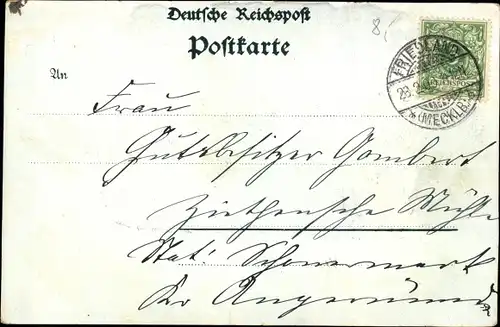 Deutsche Reichspost
Postkarte
An
FRIEDLAND
(MECKLB.)
Frau
Gutsbesitzer Gombert
Ziethensche Mühle
Stat: Schönermark
Kr Angermünde